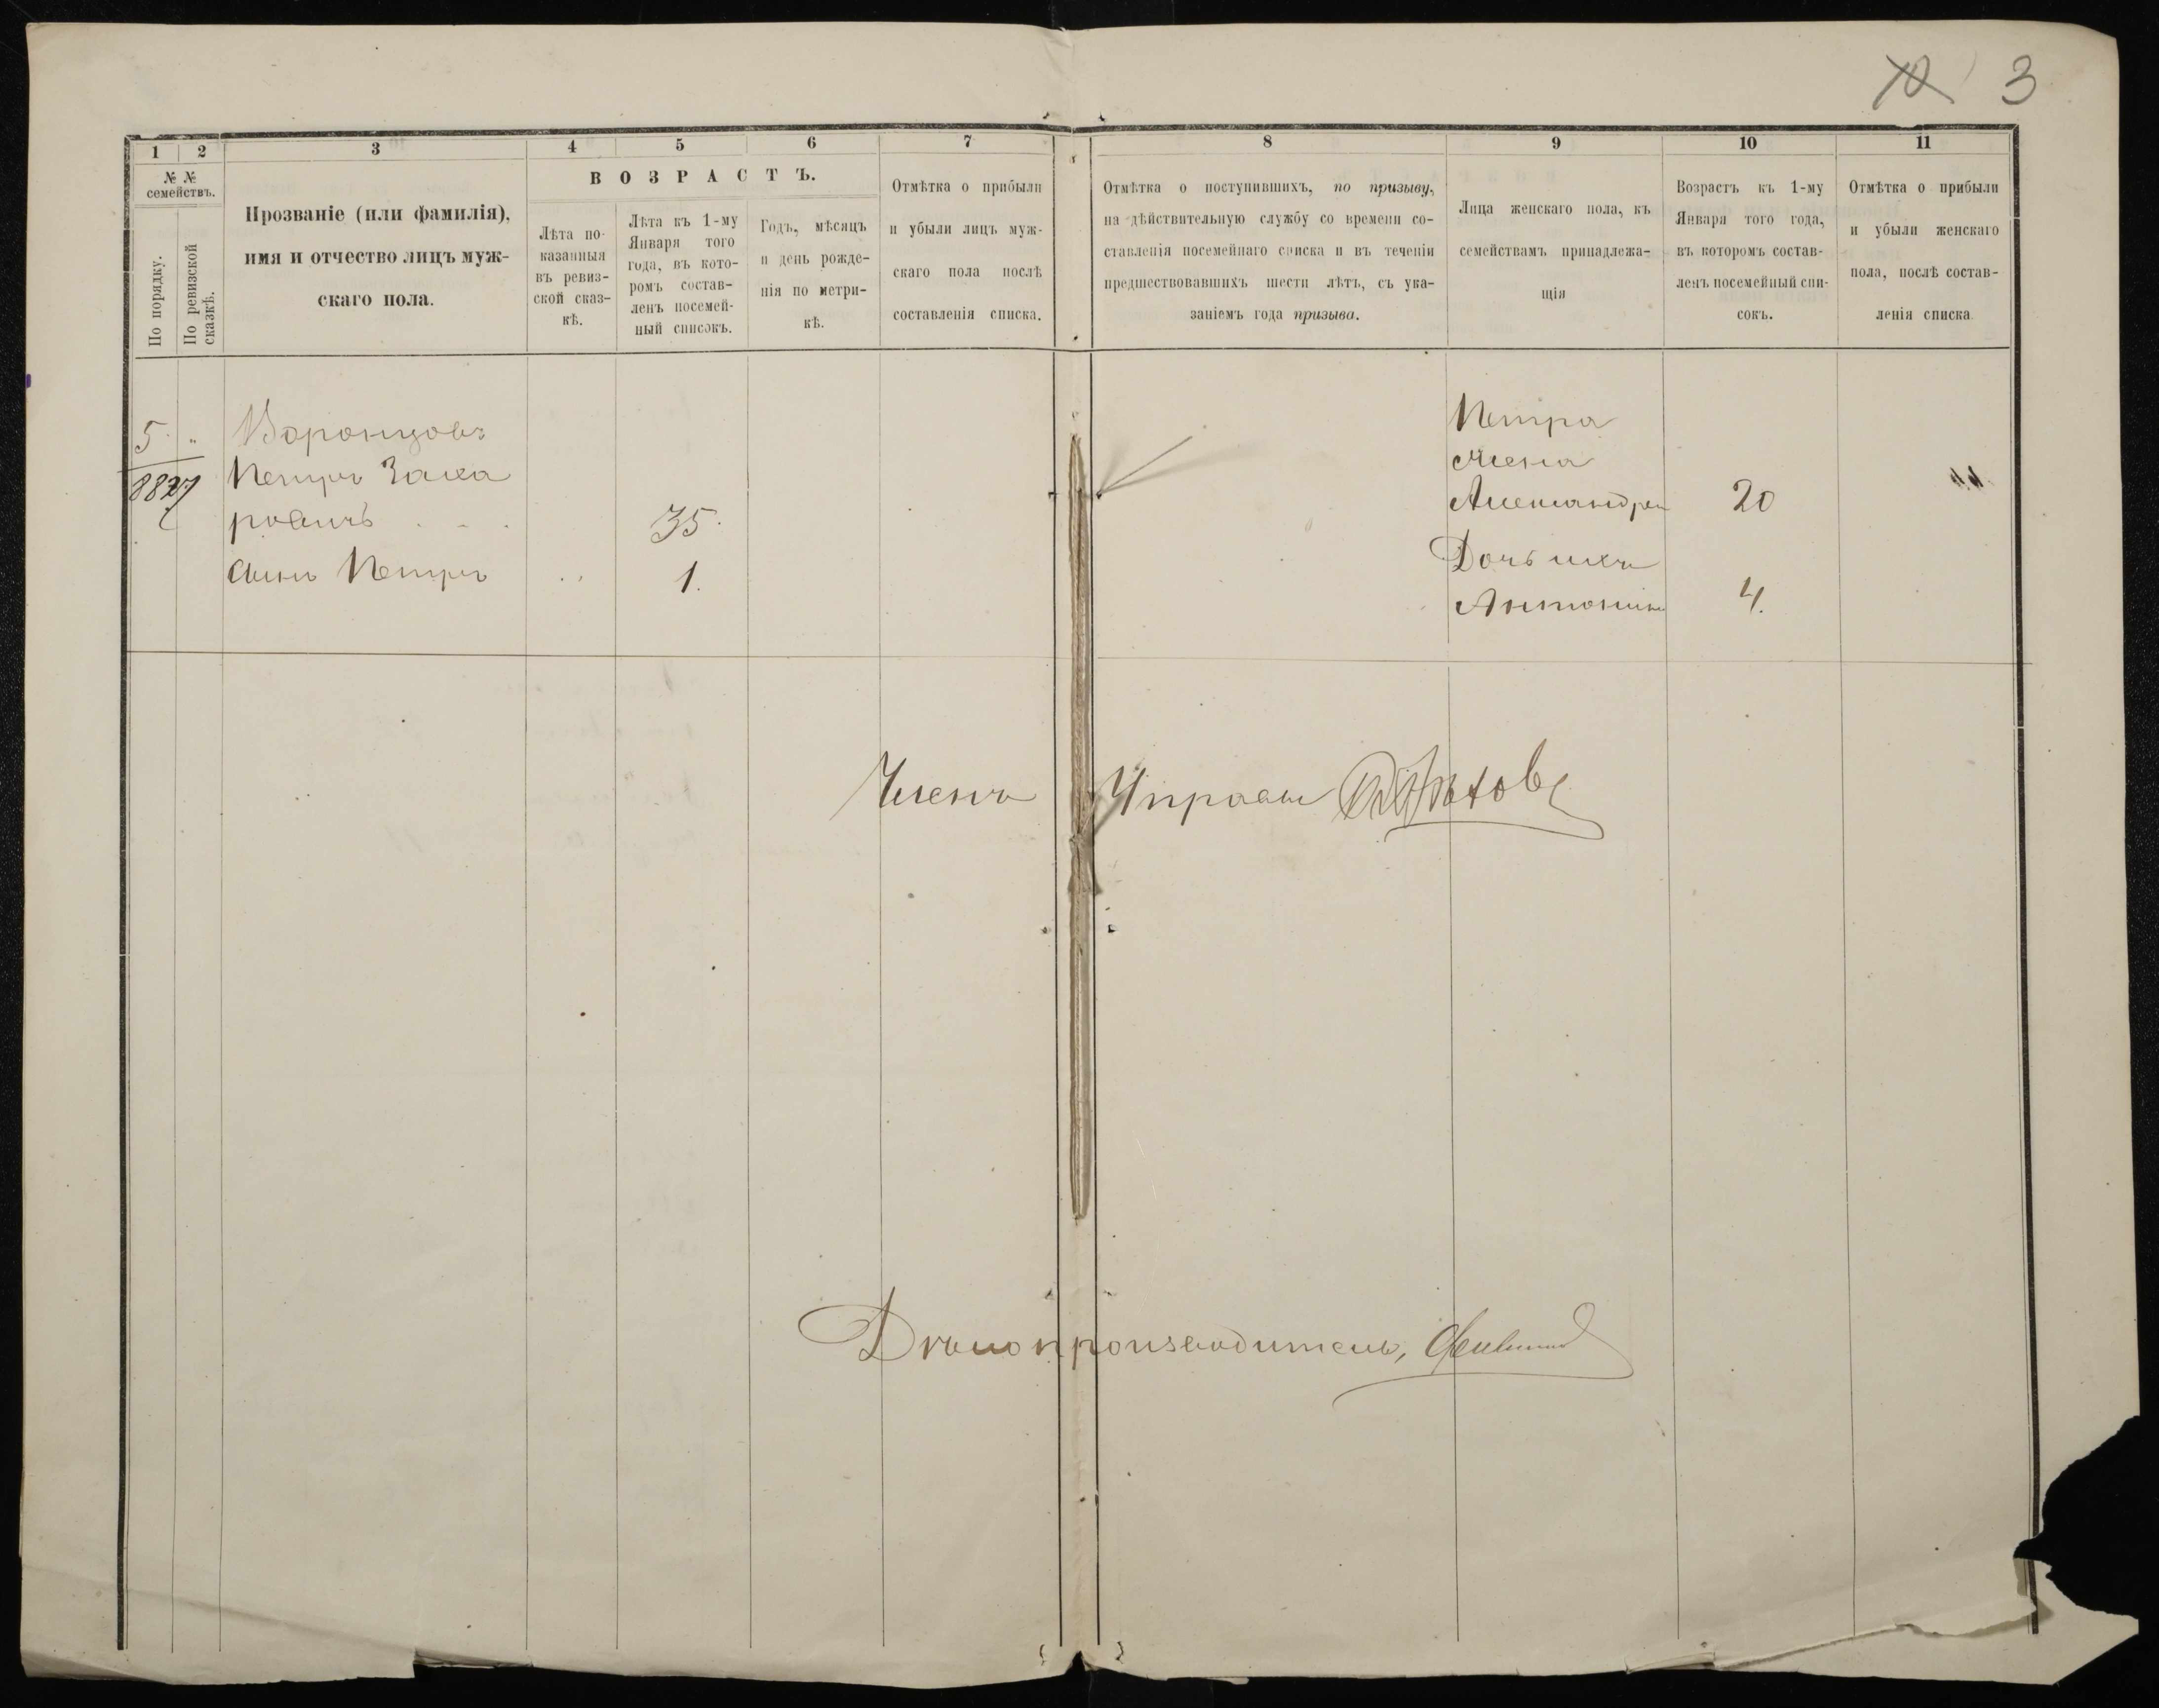 3
1 2 3 4 5 6 7 8 9 10 11
№ №
семействъ.
По порядку.
По ревизской
сказкѣ.
Прозваніе (или фамилія),
имя и отчество лицъ муж-
скаго пола.
ВОЗРАСТЪ.
Лѣта по-
казанныя
въ ревиз-
ской сказ-
кѣ.
Лѣта къ 1-му
Января того
года, въ кото-
ромъ состав-
ленъ посемей-
ный списокъ.
Годъ, мѣсяцъ
и день рожде-
нія по метри-
кѣ.
Отмѣтка о прибыли
и убыли лицъ муж-
скаго пола послѣ
составленія списка.
Отмѣтка о поступившихъ, по призыву,
на дѣйствительную службу со времени со-
ставленія посемейнаго списка и въ теченіи
предшествовавшихъ шести лѣтъ, съ ука-
заніемъ года призыва.
Лица женскаго пола, къ
семействамъ принадлежа-
щія
Возрастъ къ 1-му
Января того года,
въ которомъ состав-
ленъ посемейный спи-
сокъ.
Отмѣтка о прибыли
и убыли женскаго
пола, послѣ состав-
ленія списка.
5 " Воронцовъ
Петръ Заха
ровичъ 35.
Сынъ Петръ 1.
Петра
жена
Александра 20
Дочь ихъ
Антонина 4.
Членъ Управы
Дѣлопроизводитель,